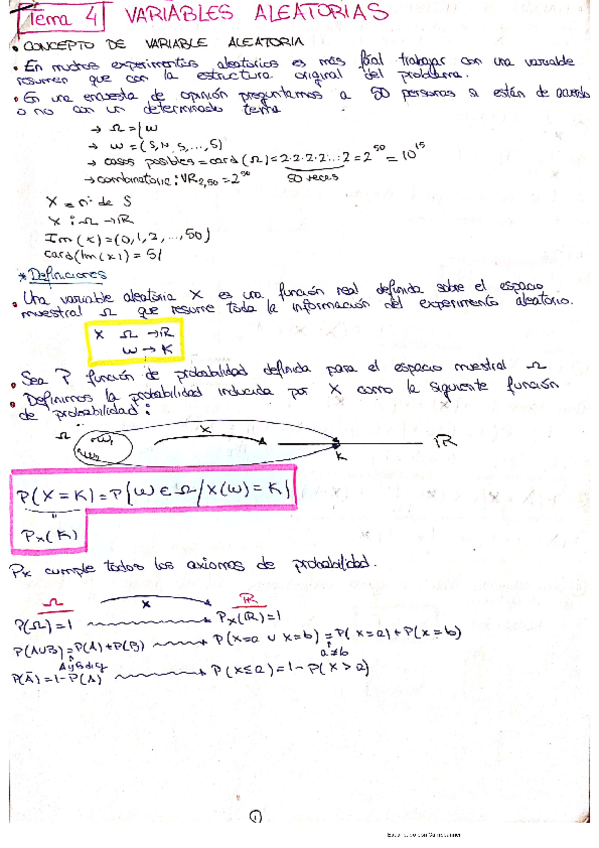 Tema 4 VARIABLES ALEATORIAS
• CONCEPTO DE VARIABLE ALEATORIA
• En muchos experimentos aleatorios es más fácil trabajar con una variable
resumen que con la estructura original del problema.
• En una encuesta de opinión preguntamos a 50 personas si están de acuerdo
o no con un determinado tema
→ Ω = {w
→ w = (S, N, S, ..., S)
→ casos posibles = card (Ω) = 2·2·2·2...·2 = 2^50 = 10^15
50 veces
→ combinatoria: VR2,50 = 2^50
X = nº de S
X : Ω → ℝ
Im (x) = (0, 1, 2, ..., 50)
card(Im(x)) = 51
* Definiciones
• Una variable aleatoria X es una función real definida sobre el espacio
muestral Ω que resume toda la información del experimento aleatorio.
X Ω → ℝ
w → K
• Sea P función de probabilidad definida para el espacio muestral Ω
• Definimos la probabilidad inducida por X como la siguiente función
de probabilidad:
Ω w1 X K ℝ
P(X = K) = P{W ∈ Ω / X(W) = K}
=
Px(K)
Px cumple todos los axiomas de probabilidad.
Ω X ℝ
P(Ω) = 1 → Px(ℝ) = 1
P(A∪B) = P(A) + P(B) → P(x=a ∪ x=b) = P(x=a) + P(x=b)
a≠b
P(Ā) = 1 - P(A) → P(x ≤ a) = 1 - P(x > a)
1